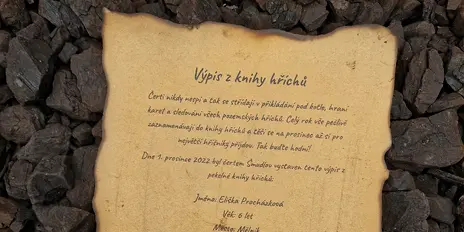 Výpis z knihy hříchů
Čerti nikdy nespí a tak se střídají v přikládání pod kotle, hraní
karet a sledování všech pozemských hříchů. Celý rok vše pečlivě
zaznamenávají do knihy hříchů a těší se na prosinec až si pro
největší hříšníky přijdou. Tak buďte hodní!
Dne 1. prosince 2022 byl čertem Šmodlou vystaven tento výpis z
pekelné knihy hříchů.
Jméno: Eliška Procházková
Věk: 6 let
Město: Mělník